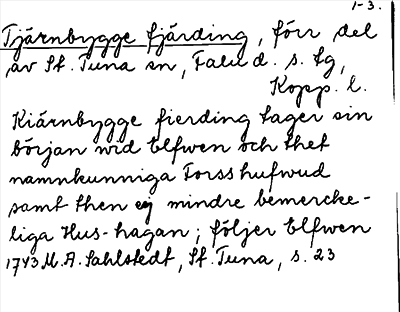 1-3.
Tjärnbygge fjärding, förr del
av St. Tuna sn, Falu d. s. tg,
Kopp. l.
Kiärnbygge fierding tager sin
början wid Elfwen och thet
namnkunniga Forsshufwud
samt then ej mindre bemercke-
liga Hus-hagan; följer Elfwen
1743 M. A. Sahlstedt, St. Tuna, s. 23